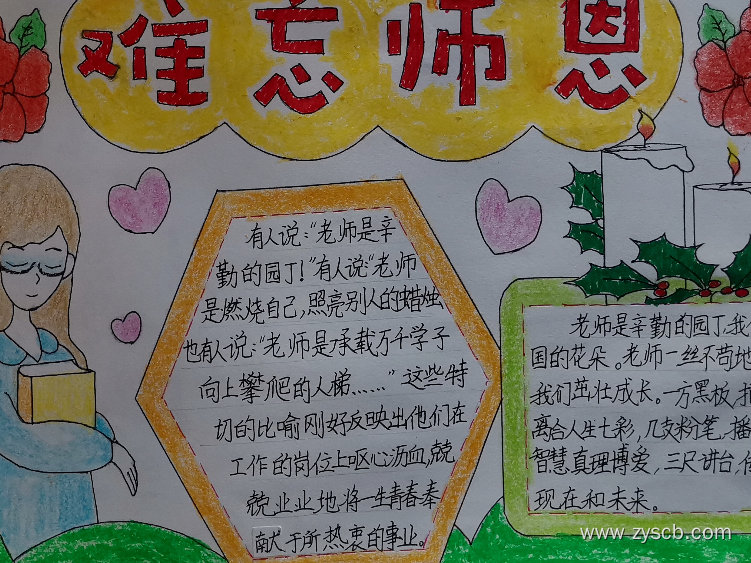 难忘师恩
有人说:“老师是辛
勤的园丁!”有人说:“老师
是燃烧自己,照亮别人的蜡烛
也有人说:“老师是承载万千学子
向上攀爬的人梯……”这些特
切的比喻刚好反映出他们在
工作的岗位上呕心沥血,兢
兢业业地将一生青春奉
献于所热衷的事业。
老师是辛勤的园丁,我
国的花朵。老师一丝不苟地
我们茁壮成长。一方黑板,
离合人生七彩,几支粉笔,播
智慧真理博爱,三尺讲台,
现在和未来。
www.zyscb.com